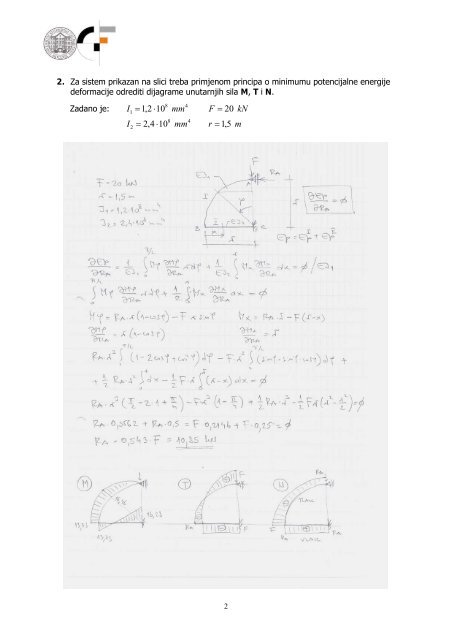 2. Za sistem prikazan na slici treba primjenom principa o minimumu potencijalne energije
deformacije odrediti dijagrame unutarnjih sila M, T i N.
Zadano je: I₁ = 1,2·10⁸ mm⁴ F = 20 kN
I₂ = 2,4·10⁸ mm⁴ r = 1,5 m
F
F = 20 kN
r = 1,5 m
J₁ = 1,2·10⁸ mm⁴
J₂ = 2,4·10⁸ mm⁴
EJ₁
RA
A
φ
B
C
EJ₂
x
r
∂Ep/∂RA = ø
Ep = Ep^I + Ep^II
∂Ep/∂RA = 1/EJ₁ ∫ Mφ ∂Mφ/∂RA r dφ + 1/EJ₂ ∫ Mx ∂Mx/∂RA dx = ø / EJ₁
∫ Mφ ∂Mφ/∂RA r dφ + 1/2 ∫ Mx ∂Mx/∂RA dx = ø
Mφ = RA·r(1-cosφ) - F·r sinφ Mx = RA·r - F(r-x)
∂Mφ/∂RA = r(1-cosφ) ∂Mx/∂RA = r
RA·r² ∫ (1-2cosφ+cos²φ) dφ - F·r² ∫ (sinφ-sinφ·cosφ) dφ +
+ 1/2 RA·r² ∫ dx - 1/2 F·r ∫ (r-x) dx = ø
RA·r³ (π/2 - 2·1 + π/4) - Fr³ (1 - 1/2) + 1/2 RA·r³ - 1/2 F r (r² - r²/2) = ø
RA·0,3562 + RA·0,5 = F·0,2194 + F·0,25 = ø
RA = 0,543·F = 10,85 kN
M
13,73
13,73
13,73
T
F
RA
F
N
RA
TLAK
F
RA
VLAK
RA
2